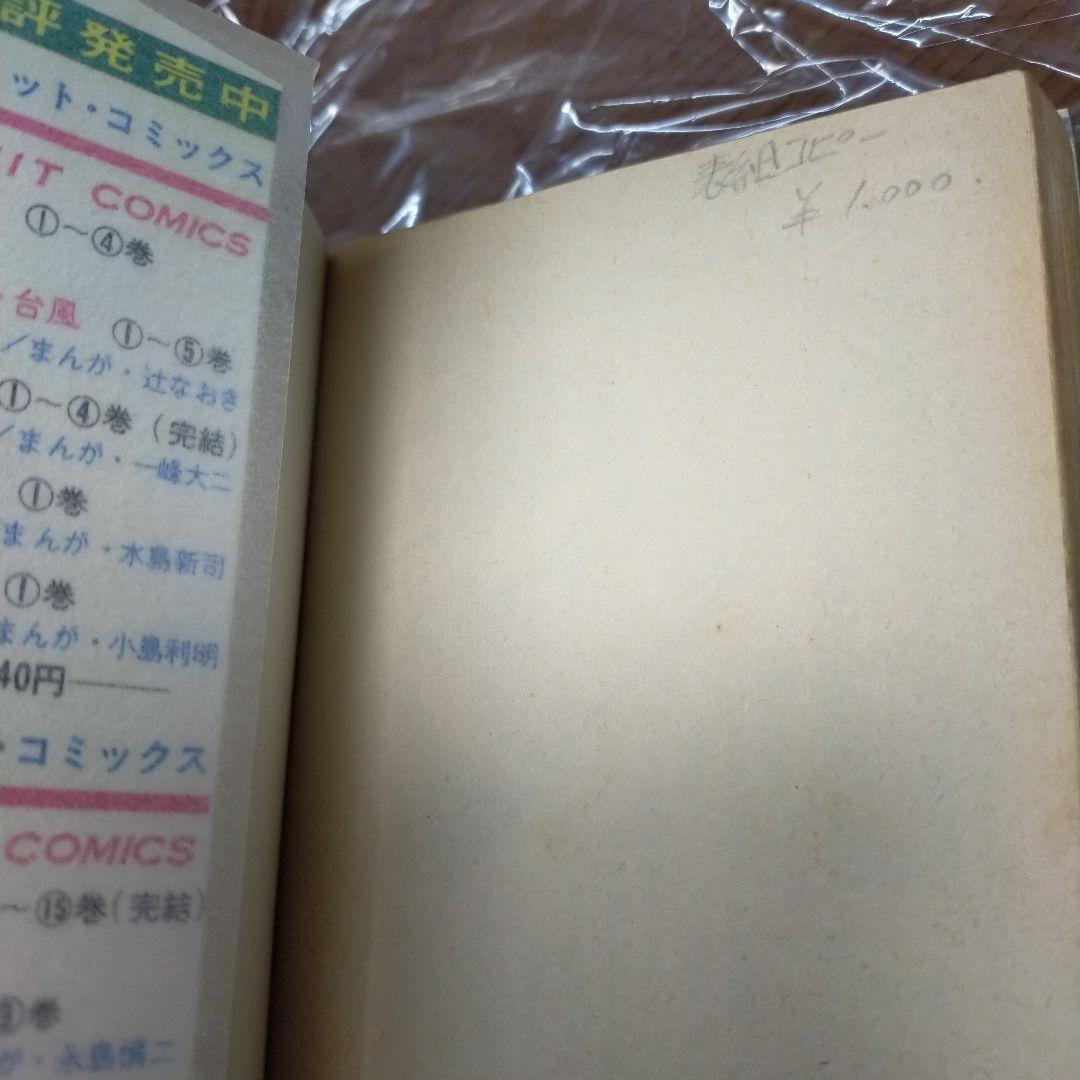 評発売中
ット・コミックス
HIT COMICS
①～④巻
台風 ①～⑤巻
／まんが・辻なおき
①～④巻（完結）
／まんが・一峰大二
①巻
まんが・水島新司
①巻
まんが・小島利明
40円
・コミックス
COMICS
～⑮巻（完結）
巻
が・永島慎二
表紙コピー
¥1,000.